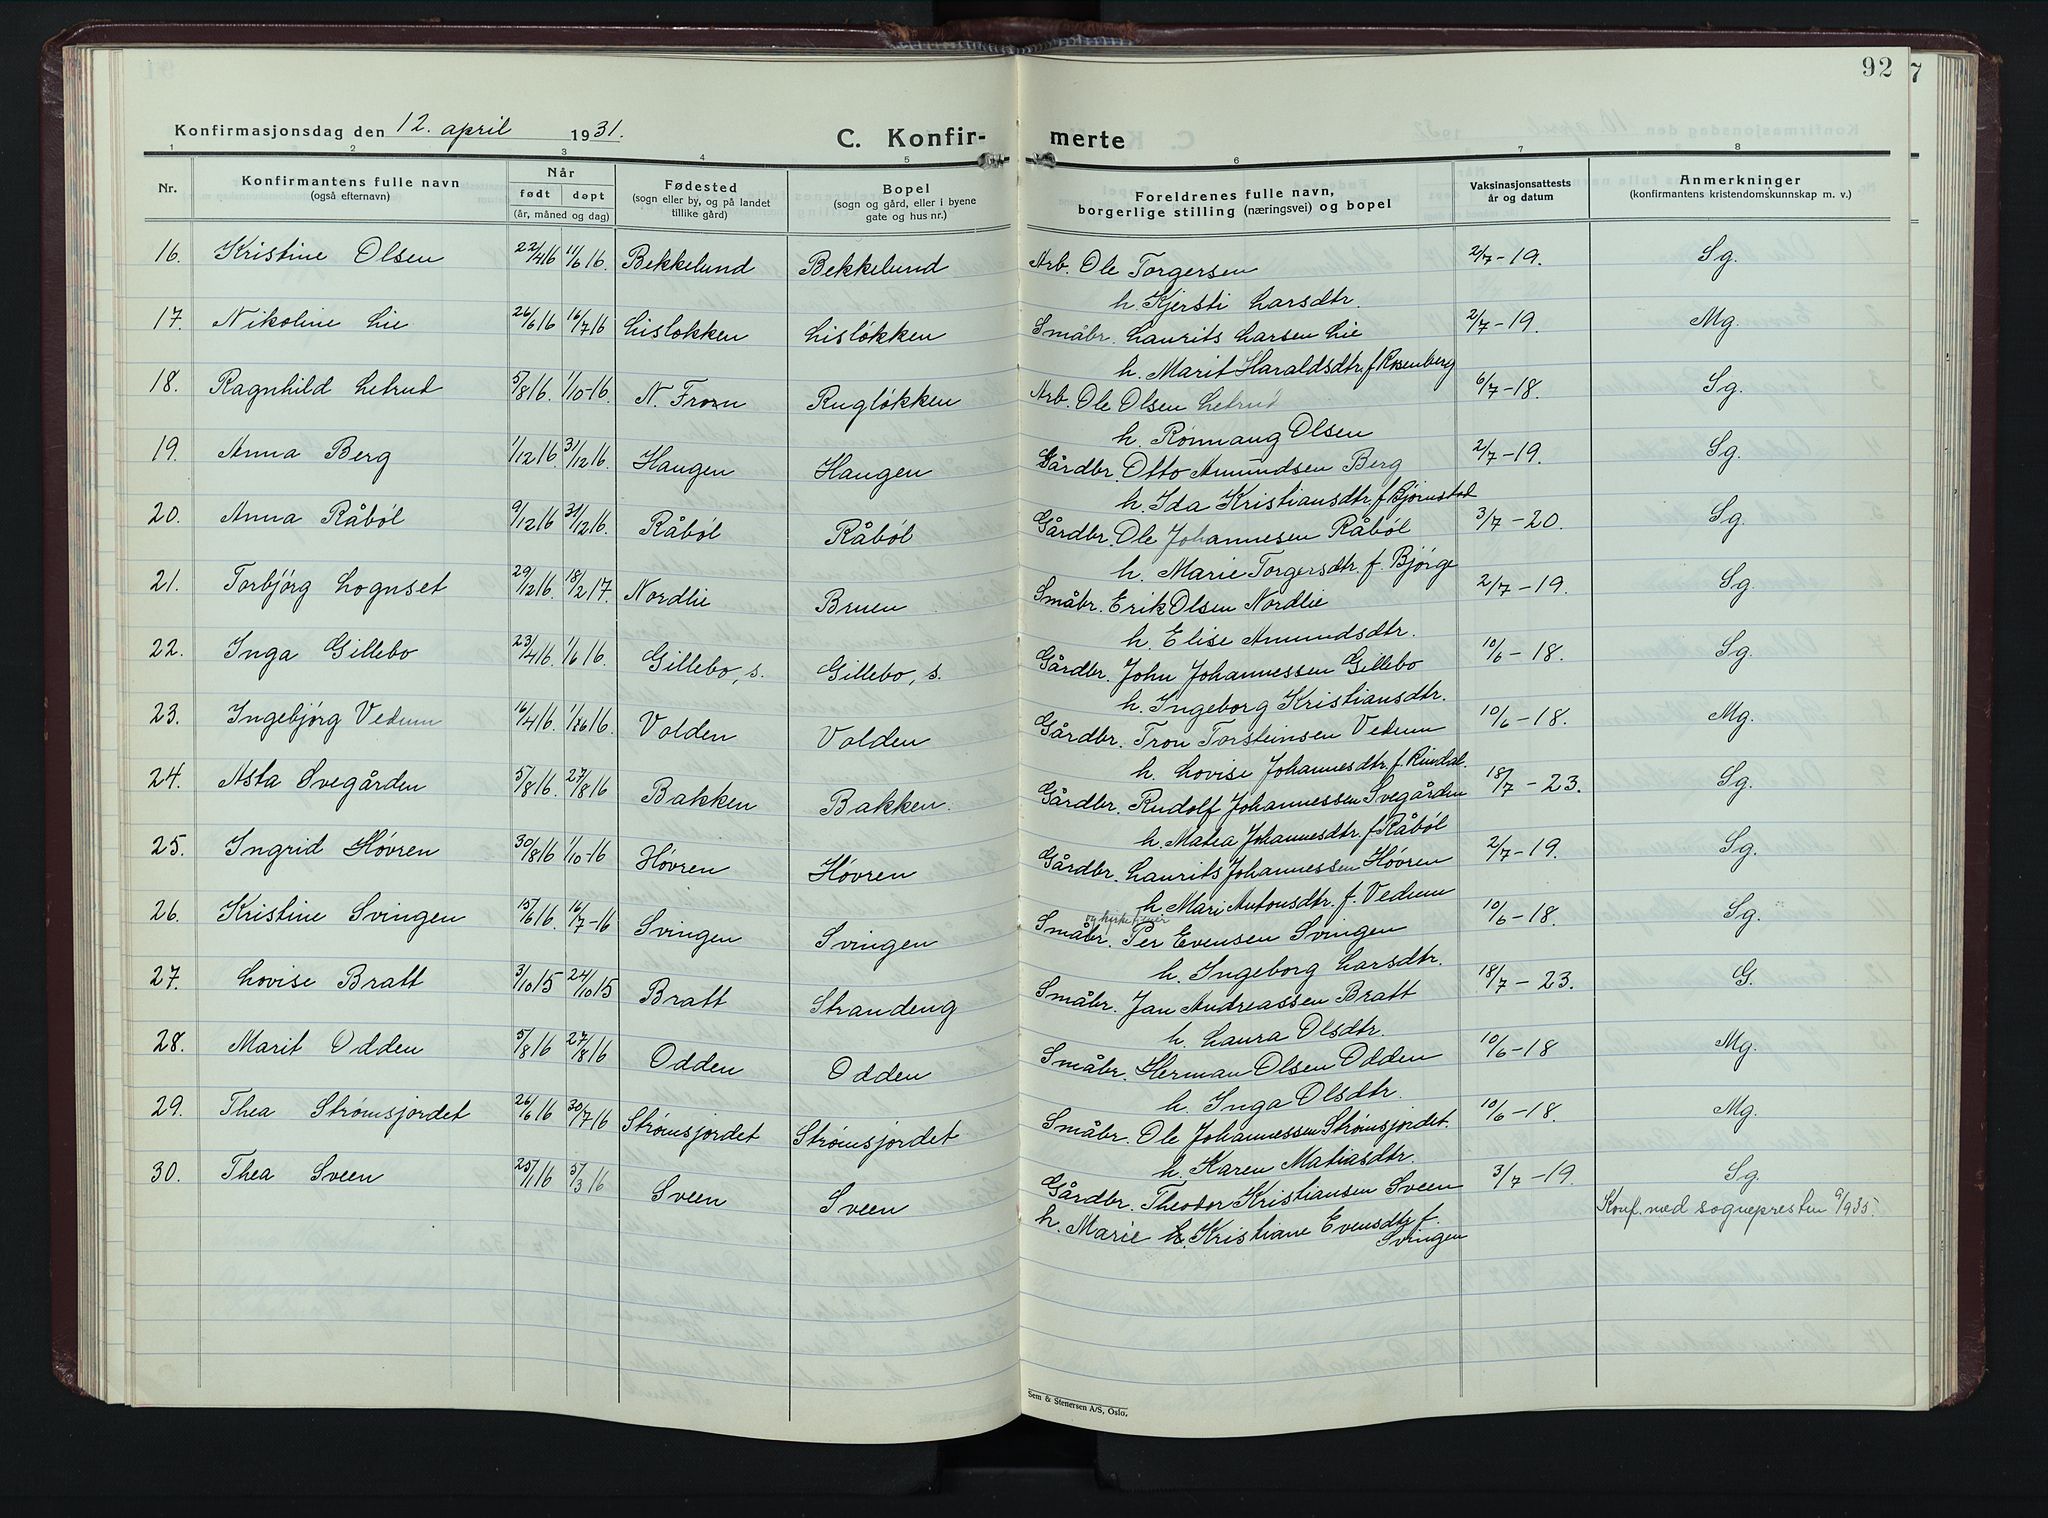 92
7
Konfirmasjonsdag den 12. april 1931.
C. Konfir-
merte
1 2 3 4 5 6 7 8
Nr. Konfirmantens fulle navn (også efternavn) Når født døpt (år, måned og dag) Fødested (sogn eller by, og på landet tillike gård) Bopel (sogn og gård, eller i byene gate og hus nr.) Foreldrenes fulle navn, borgerlige stilling (næringsvei) og bopel Vaksinasjonsattests år og datum Anmerkninger (konfirmantens kristendomskunnskap m. v.)
16. Kristine Olsen 22/4 16 11/6 16. Bekkelund Bekkelund Arb. Ole Torgersen 2/7-19. Sg.
h. Kjersti Larsdtr.
17. Nikoline Lie 26/6 16 16/7 16 Lisløkken Lisløkken Småbr. Laurits Larsen Lie 2/7-19. Mg.
h. Marit Haraldsdtr. f. Rosenberg
18. Ragnhild Letrud 5/8 16. 1/10-16. N. Fron Rugløkken Arb. Ole Olsen Letrud 6/7-18. Sg.
h. Rønnaug Olsen
19. Anna Berg 1/12 16. 31/12 16. Haugen Haugen Gårdbr. Otto Amundsen Berg 2/7-19. Sg.
h. Ida Kristiansdtr. f. Bjørnstad
20. Anna Råbøl 9/12 16 31/12 16. Råbøl Råbøl Gårdbr. Ole Johannesen Råbøl 3/7-20. Sg.
h. Marie Torgersdtr. f. Bjørge
21. Torbjørg Lognset 29/12 16. 18/2 17. Nordlie Bruen Småbr. Erik Olsen Nordlie 2/7-19. Sg.
h. Elise Amundsdtr.
22. Inga Gillebo 23/4 16. 1/6 16. Gillebo, s. Gillebo, s. Gårdbr. John Johannessen Gillebo 10/6-18. Sg.
h. Ingeborg Kristiansdtr.
23. Ingebjørg Vedum 16/4 16. 16. Volden Volden Gårdbr. Tron Torsteinsen Vedum 10/6-18. Mg.
h. Lovise Johannesdtr. f. Rindal.
24. Asta Svegården 5/8 16. 27/8 16 Bakken Bakken. Gårdbr. Rudolf Johannessen Svegården 18/7-23. Sg.
h. Matea Johannesdtr. f Råbøl
25. Ingrid Høvren 30/8 16 1/10-16 Høvren Høvren Gårdbr. Laurits Johannessen Høvren 2/7-19. Sg.
h. Mari Antonsdtr. f. Vedum
26. Kristine Svingen 15/6 16. 16/7-16 Svingen Svingen og kirketjener Småbr. Per Evensen Svingen 10/6-18. Sg.
h. Ingeborg Larsdtr.
27. Lovise Bratt 3/10 15 24/10 15 Bratt Strandeng Småbr. Jan Andreassen Bratt 18/7-23. G.
h. Laura Olsdtr.
28. Marit Odden 5/8 16 27/8 16 Odden Odden Småbr. Herman Olsen Odden 10/6-18 Mg.
h. Inga Olsdtr.
29. Thea Strømsjordet 26/6 16 30/7 16 Strømsjordet Strømsjordet Småbr. Ole Johannessen Strømsjordet. 10/6-18. Mg.
h. Karen Matiasdtr.
30. Thea Sveen 25/1 16 5/3 16 Sveen Sveen Gårdbr. Theodor Kristiansen Sveen 3/7-19. Sg.
h. Marie Kristiane Evensdtr f. Svingen
Konf. med sognepresten 9/935.
Sem & Stenersen A/S, Oslo.